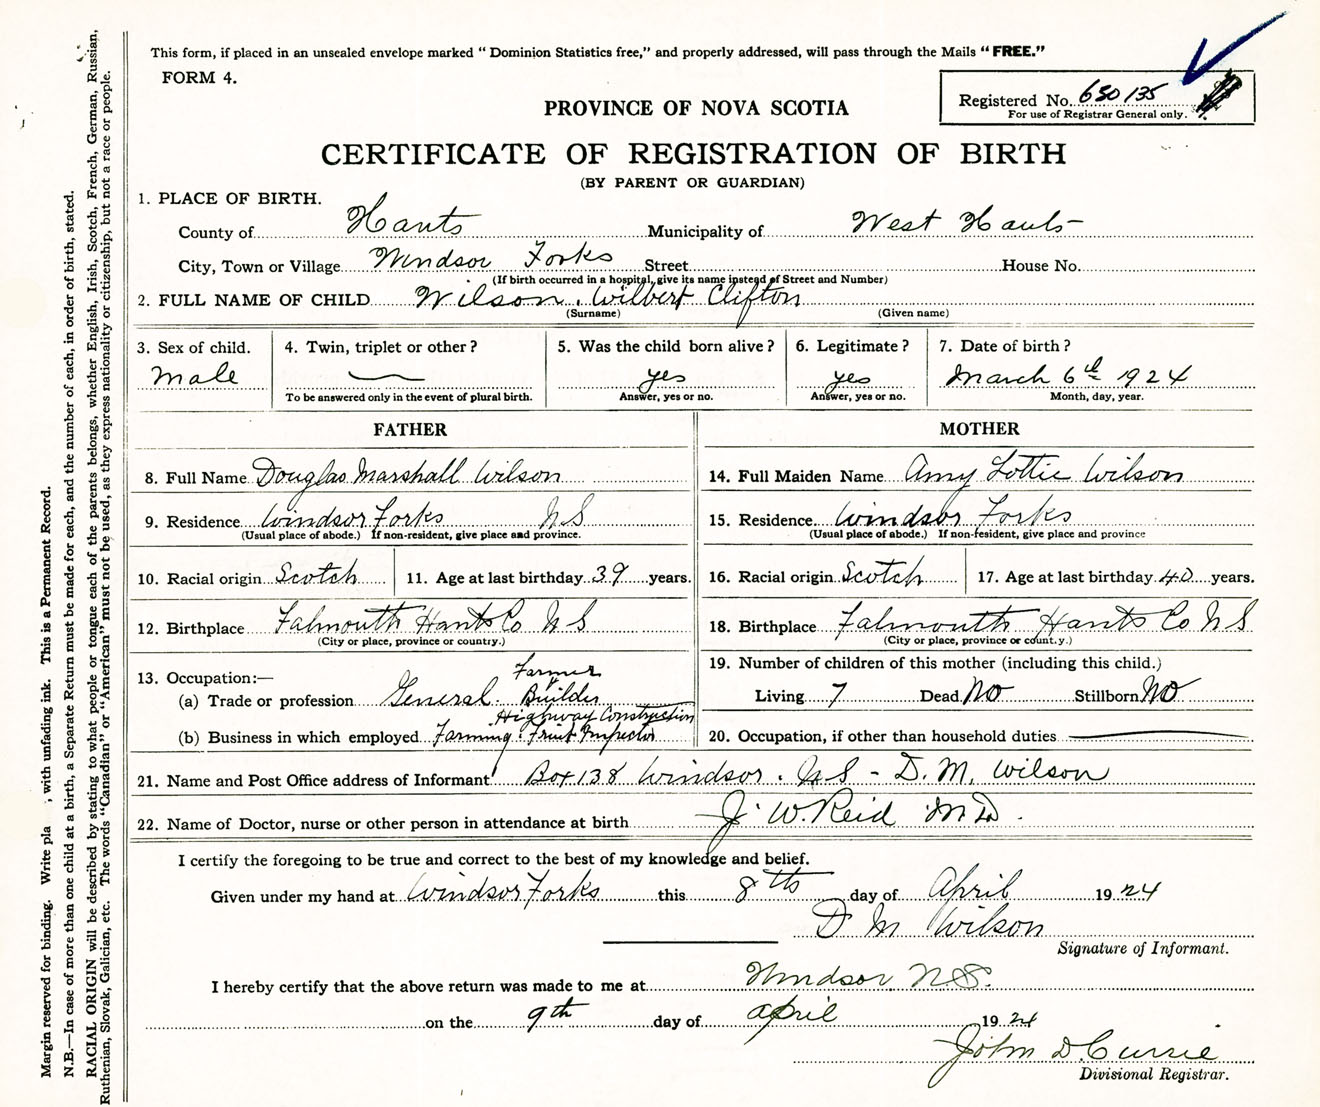 This form, if placed in an unsealed envelope marked "Dominion Statistics free," and properly addressed, will pass through the Mails "FREE."
FORM 4.
Registered No. 630135
For use of Registrar General only.
PROVINCE OF NOVA SCOTIA
CERTIFICATE OF REGISTRATION OF BIRTH
(BY PARENT OR GUARDIAN)
1. PLACE OF BIRTH.
County of Hants Municipality of West Hants
City, Town or Village Windsor Forks Street House No.
(If birth occurred in a hospital, give its name instead of Street and Number)
2. FULL NAME OF CHILD Wilson, Wilbert Clifton
(Surname) (Given name)
3. Sex of child. 4. Twin, triplet or other? 5. Was the child born alive? 6. Legitimate? 7. Date of birth?
Male yes yes March 6th 1924
To be answered only in the event of plural birth. Answer, yes or no. Answer, yes or no. Month, day, year.
FATHER MOTHER
8. Full Name Douglas Marshall Wilson 14. Full Maiden Name Amy Lottie Wilson
9. Residence Windsor Forks N S 15. Residence Windsor Forks
(Usual place of abode.) If non-resident, give place and province. (Usual place of abode.) If non-resident, give place and province
10. Racial origin Scotch 11. Age at last birthday 39 years. 16. Racial origin Scotch 17. Age at last birthday 40 years.
12. Birthplace Falmouth Hants Co N S 18. Birthplace Falmouth Hants Co N S
(City or place, province or country.) (City or place, province or count.y.)
13. Occupation:— 19. Number of children of this mother (including this child.)
Farmer
(a) Trade or profession General Builder Living 7 Dead NO Stillborn NO
Highway Construction
(b) Business in which employed Farming. Fruit Inspector 20. Occupation, if other than household duties
21. Name and Post Office address of Informant Box 138 Windsor. N S - D. M. Wilson
22. Name of Doctor, nurse or other person in attendance at birth J. W. Reid M D.
I certify the foregoing to be true and correct to the best of my knowledge and belief.
Given under my hand at Windsor Forks this 8th day of April 1924
D M Wilson
Signature of Informant.
I hereby certify that the above return was made to me at Windsor N.S.
on the 9th day of April 1924
John D. Currie
Divisional Registrar.
Margin reserved for binding. Write pla , with unfading ink. This is a Permanent Record.
N.B.—In case of more than one child at a birth, a Separate Return must be made for each, and the number of each, in order of birth, stated.
RACIAL ORIGIN will be described by stating to what people or tongue each of the parents belongs, whether English, Irish, Scotch, French, German, Russian,
Ruthenian, Slovak, Galician, etc. The words "Canadian" or "American" must not be used, as they express nationality or citizenship, but not a race or people.